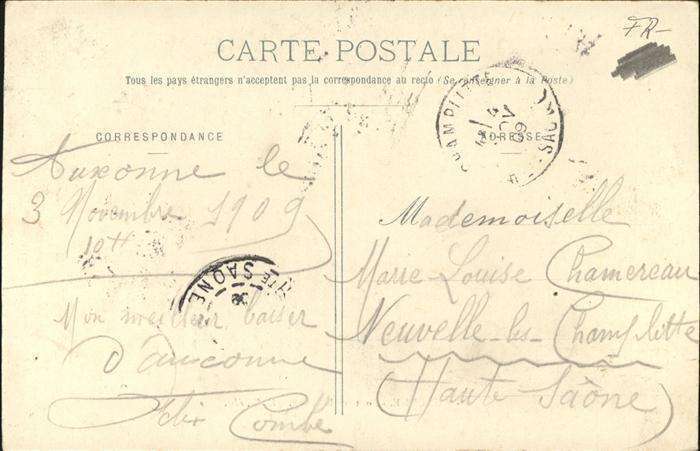 FR-
CARTE POSTALE
Tous les pays étrangers n'acceptent pas la correspondance au recto (Se renseigner à la Poste)
CORRESPONDANCE
Auxonne le
3 Novembre 1909
10H
Mon meilleur baiser
d'Auxonne
Félix Combe
HTE SAÔNE
ADRESSE
CHAMPLITTE
09
Mademoiselle
Marie Louise Chamereau
Neuvelle-les-Champlitte
(Haute Saône)